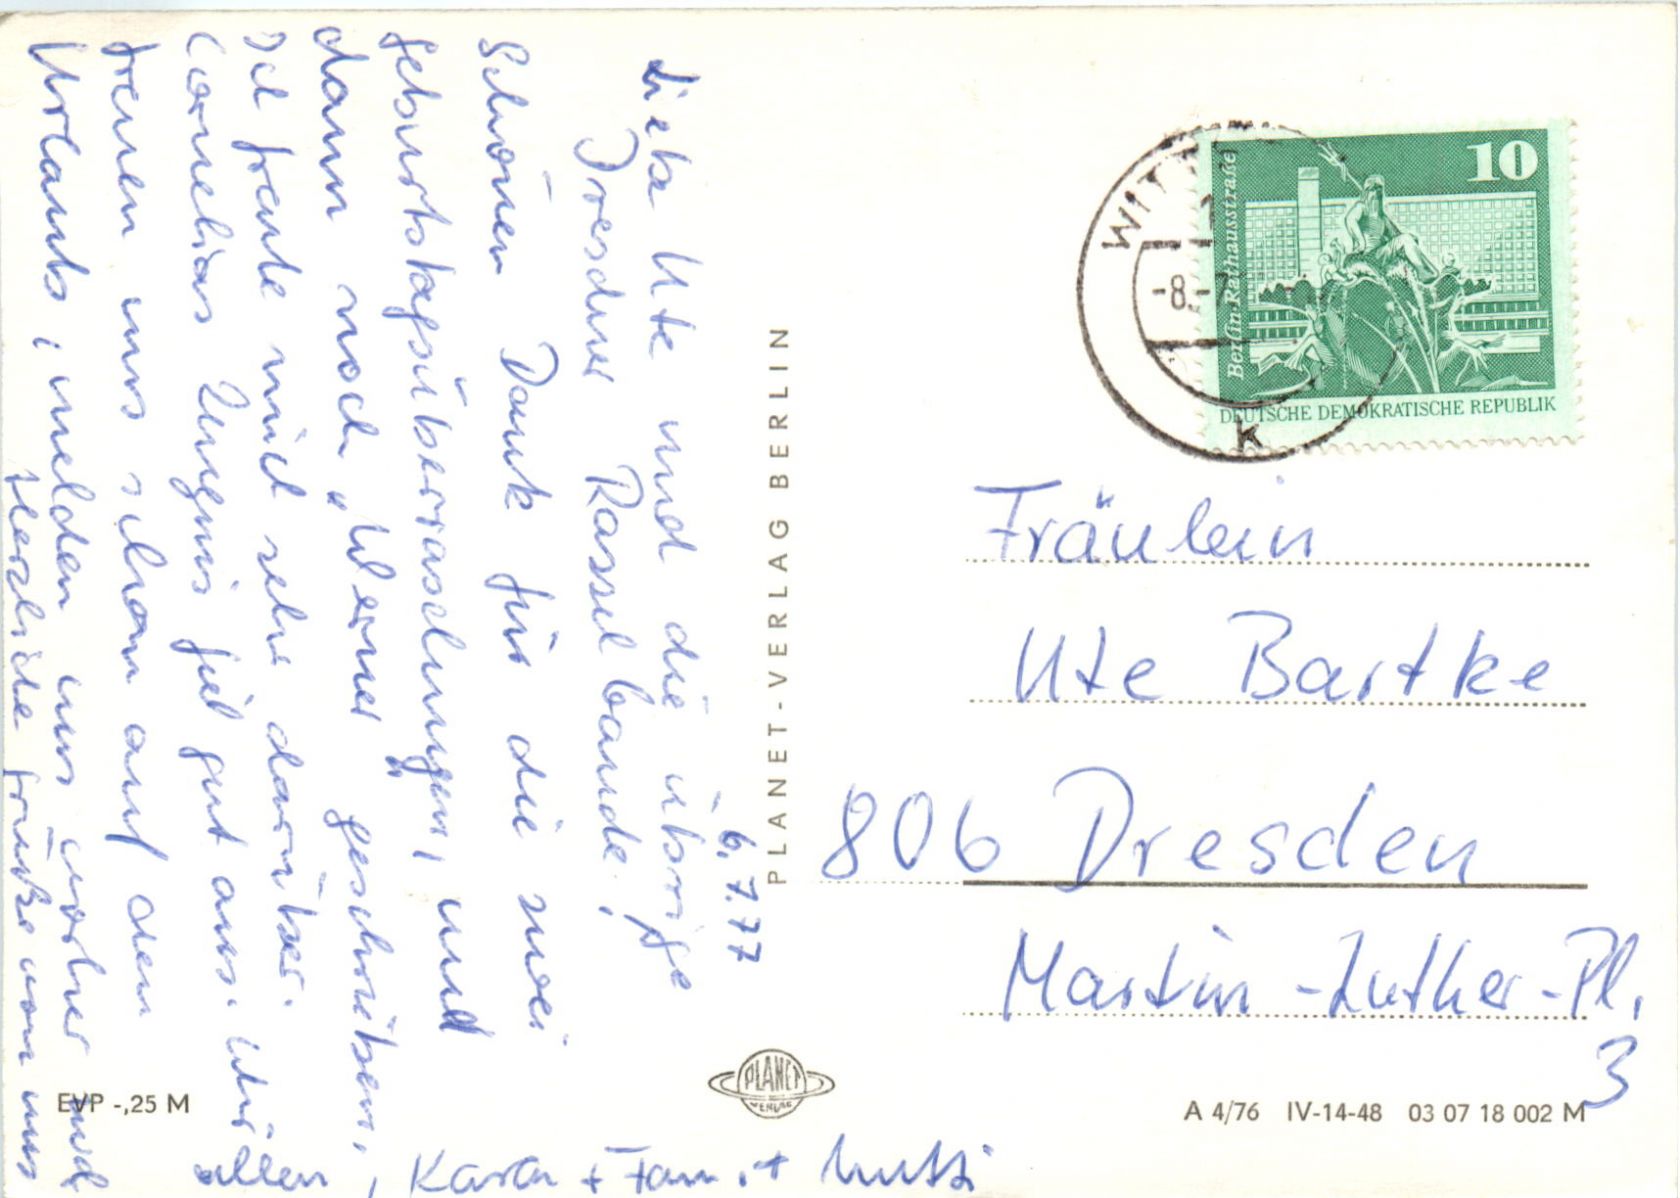 6.7.77
Liebe Ute und die übrige
Dresdner Rasselbande!
Schönen Dank für die zwei
Geburtstagsüberraschungen, und
dann noch „Werner" geschrieben,
Ich freute mich sehr darüber.
Cornelias Zeugnis fiel gut aus. Wir
freuen uns schon auf den
Urlaub, melden uns vorher und
Herzliche Grüße von uns
allen, Karin + Fam. + Mutti
PLANET-VERLAG BERLIN
PLANET
VERLAG
EVP -,25 M
10
Berlin-Rathausstraße
DEUTSCHE DEMOKRATISCHE REPUBLIK
WITT
-8.-7.
k
Fräulein
Ute Bartke
806 Dresden
Martin-Luther-Pl.
3
A 4/76 IV-14-48 03 07 18 002 M